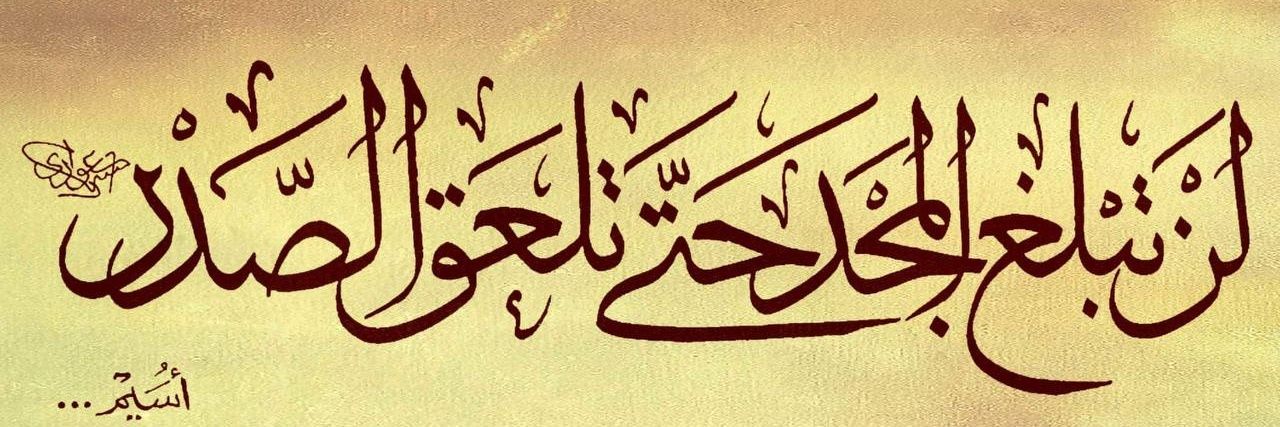 لَنْ تَبْلُغَ الْمَجْدَ حَتَّى تَلْعَقَ الصَّدْر
أُسَيْم ...